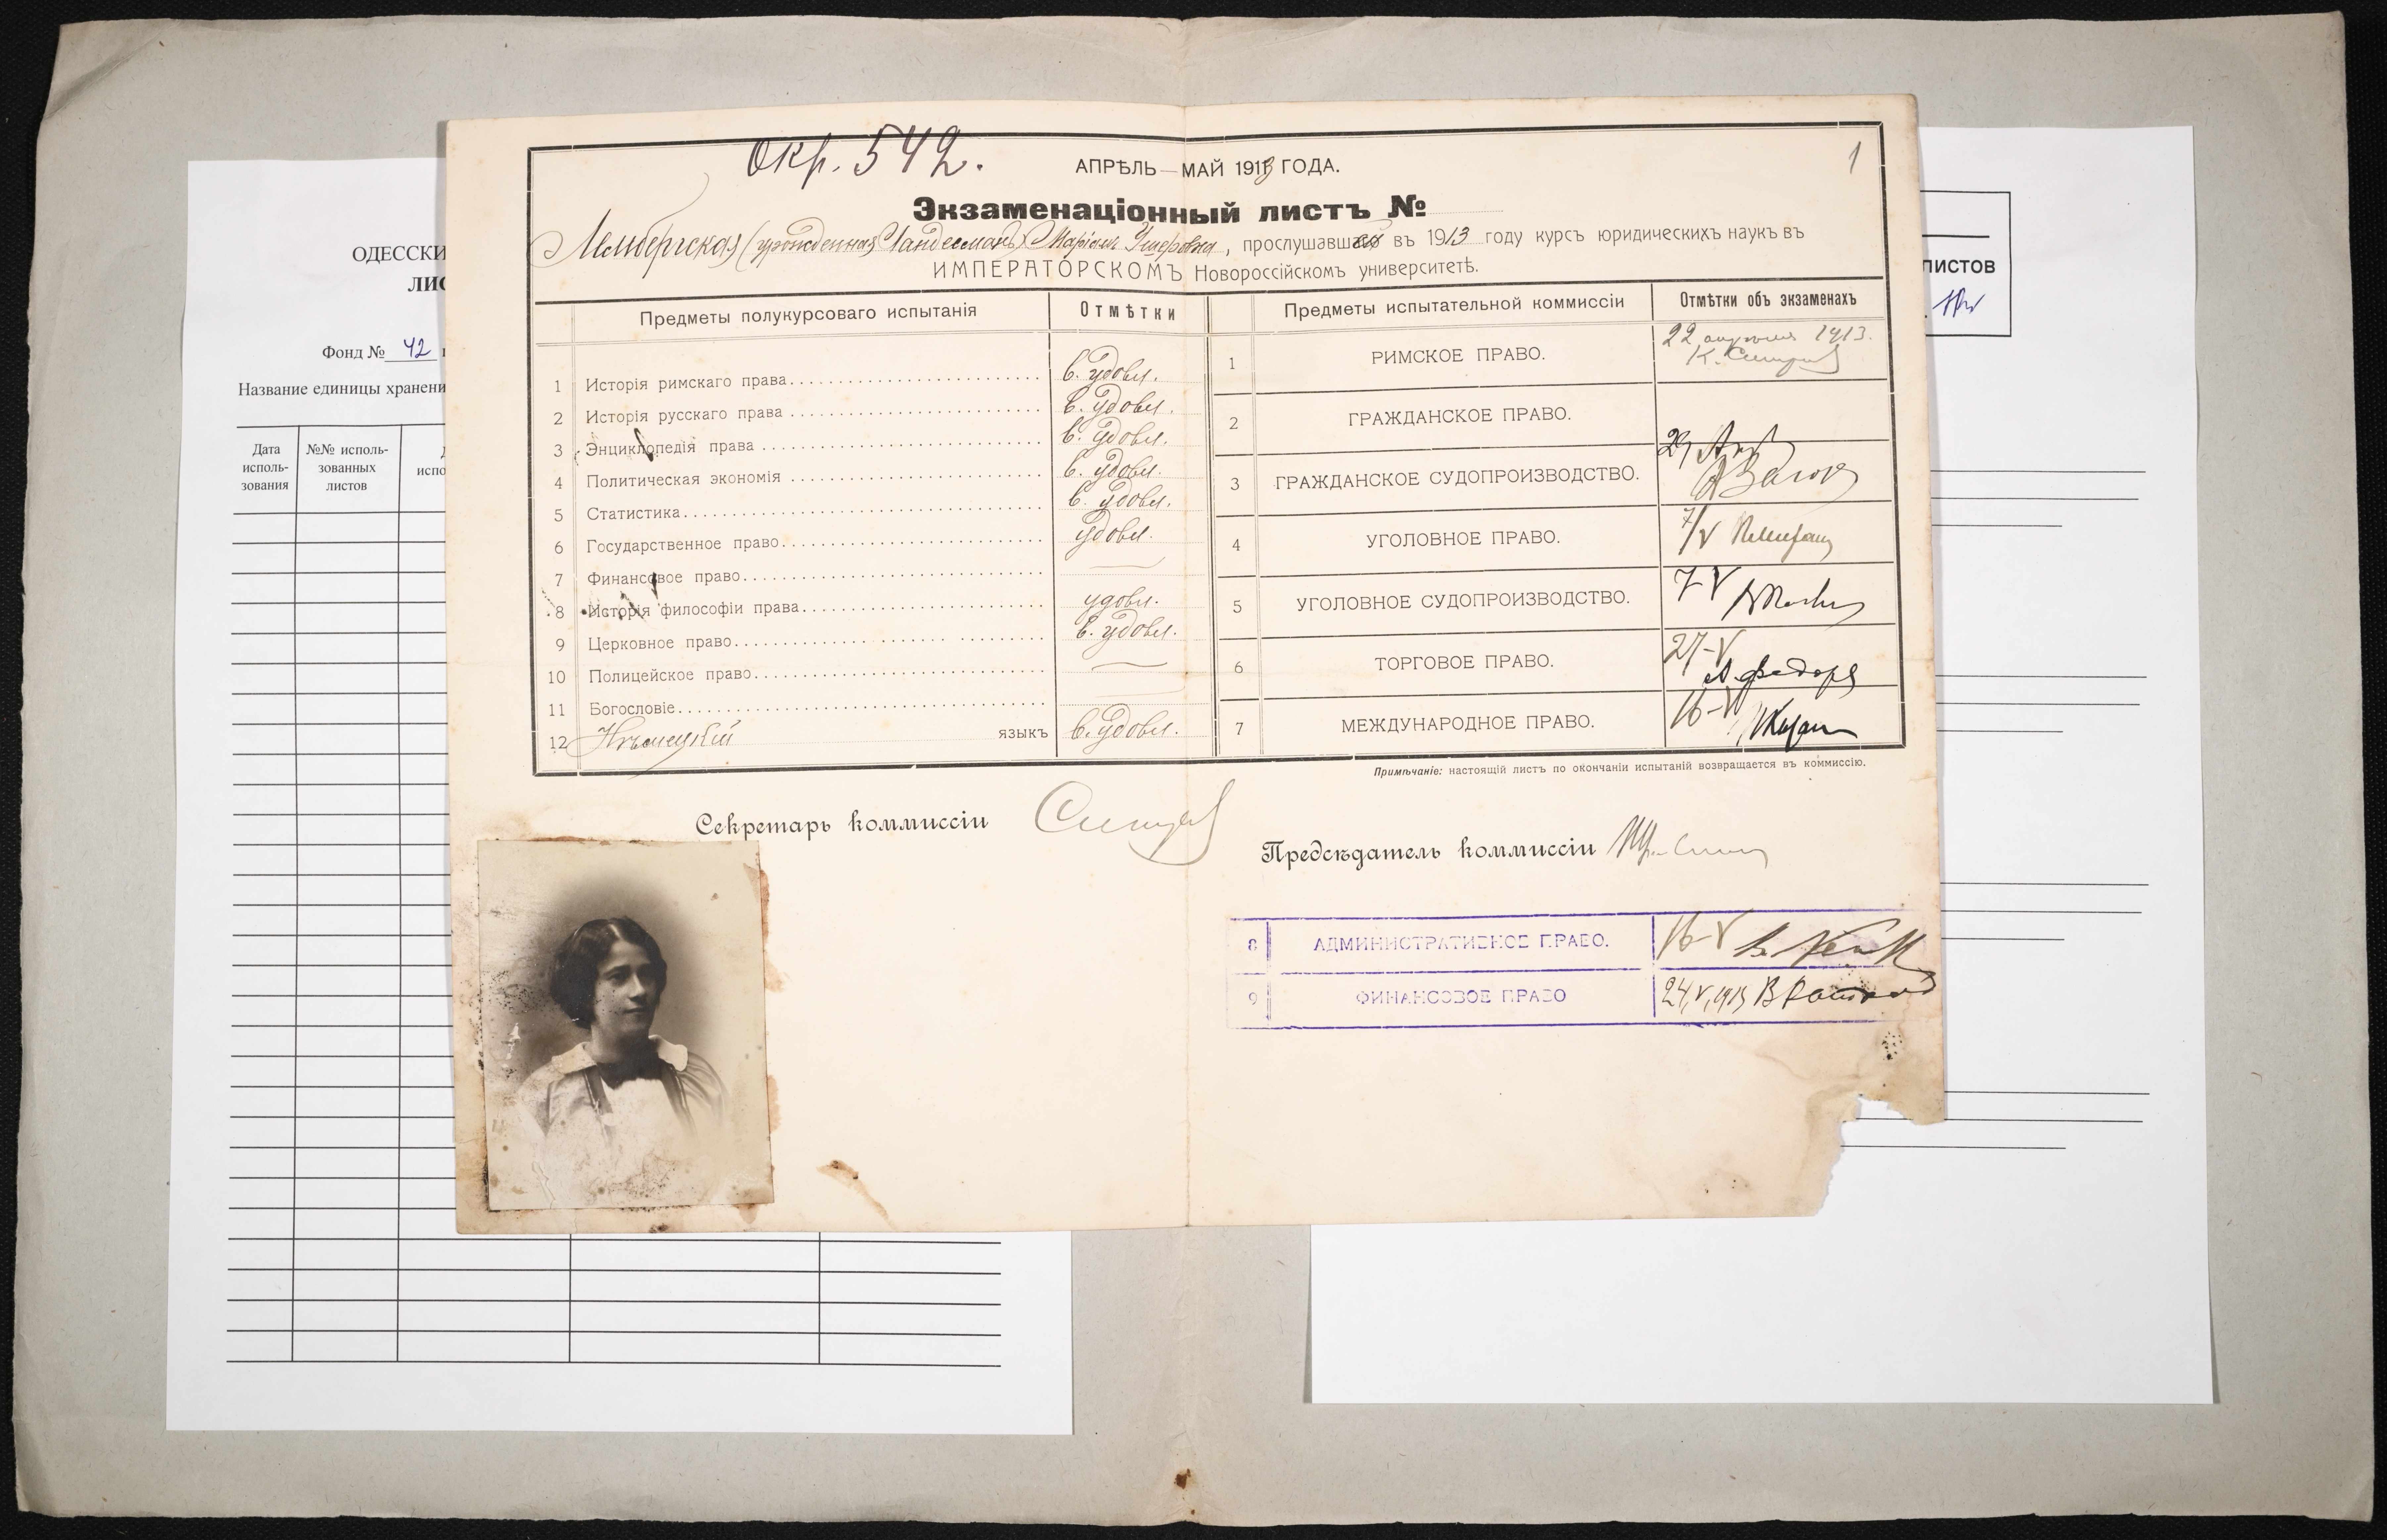 окр. 542.
1
АПРѢЛЬ — МАЙ 1913 ГОДА.
Экзаменаціонный листъ №
Лембергская (урожденная Ландесманъ) Маріамъ Ушеровна, прослушавшая въ 1913 году курсъ юридическихъ наукъ въ
ИМПЕРАТОРСКОМЪ Новороссійскомъ университетѣ.
Предметы полукурсоваго испытанія Отмѣтки
1 Исторія римскаго права в. удовл.
2 Исторія русскаго права в. удовл.
3 Энциклопедія права в. удовл.
4 Политическая экономія в. удовл.
5 Статистика в. удовл.
6 Государственное право удовл.
7 Финансовое право —
8 Исторія философіи права удовл.
9 Церковное право в. удовл.
10 Полицейское право —
11 Богословіе
12 Нѣмецкій языкъ в. удовл.
Предметы испытательной коммиссіи Отмѣтки объ экзаменахъ
1 РИМСКОЕ ПРАВО. 22 апрѣля 1913.
2 ГРАЖДАНСКОЕ ПРАВО.
3 ГРАЖДАНСКОЕ СУДОПРОИЗВОДСТВО.
4 УГОЛОВНОЕ ПРАВО. 7/V
5 УГОЛОВНОЕ СУДОПРОИЗВОДСТВО. 7-V
6 ТОРГОВОЕ ПРАВО. 27-V
7 МЕЖДУНАРОДНОЕ ПРАВО. 16-V
Примѣчаніе: настоящій листъ по окончаніи испытаній возвращается въ коммиссію.
Секретарь коммиссіи
Предсѣдатель коммиссіи
8 АДМИНИСТРАТИВНОЕ ПРАВО. 16-V
9 ФИНАНСОВОЕ ПРАВО 24, V, 1913
ОДЕССКИ
ЛИС
Фонд № 42
Название единицы хранени
Дата исполь-зования
№№ исполь-зованных листов
испо
ЛИСТОВ